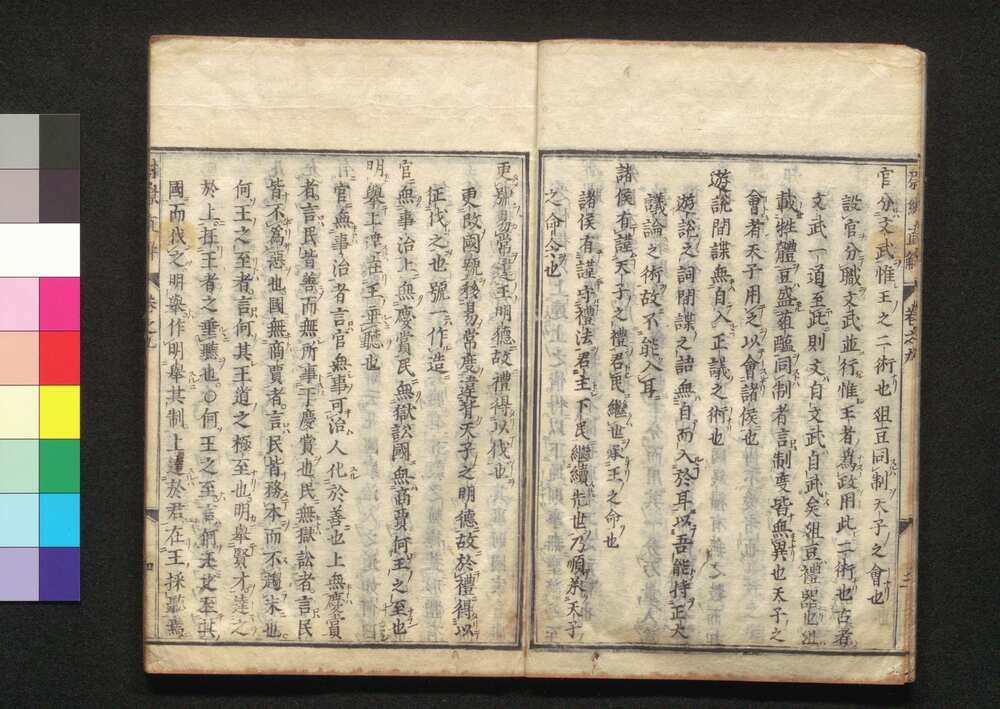 官分文武惟王之二術也俎豆同制天子之會也
設官分職文武並行惟王者為政用此二術也古者
文武一道至此則文自文武自武矣俎豆禮器也俎
載牲體豆盛菹醢同制者言制度皆無異也天子之
會者天子用之以會諸侯也
遊說閒諜無自入正議之術也
遊說之詞閒諜之語無自而入於耳以吾能持正大
議論之術故不能入耳
諸侯有謹天子之禮君民繼世承王之命也
諸侯有謹守禮法君主下民繼續先世乃順承天子
之命令也
更號易常違王明德故禮得以伐也
更改國號移易常慶違背天子之明德故於禮得以
征伐之也號一作造
官無事治上無慶賞民無獄訟國無商賈何王之至也
明舉上達在王垂聽也
官無事治者言官無事可治人化於善也上無慶賞
者言民皆善而無所事于慶賞也民無獄訟者言民
皆不為惡也國無商賈者言民皆務本而不趨末也
何王之至者言何其王道之極至也明舉賢才達之
於上在王者之垂聽也○何王之至言何王之至此
國而伐之明舉作明舉其制上達於君在王採聽焉